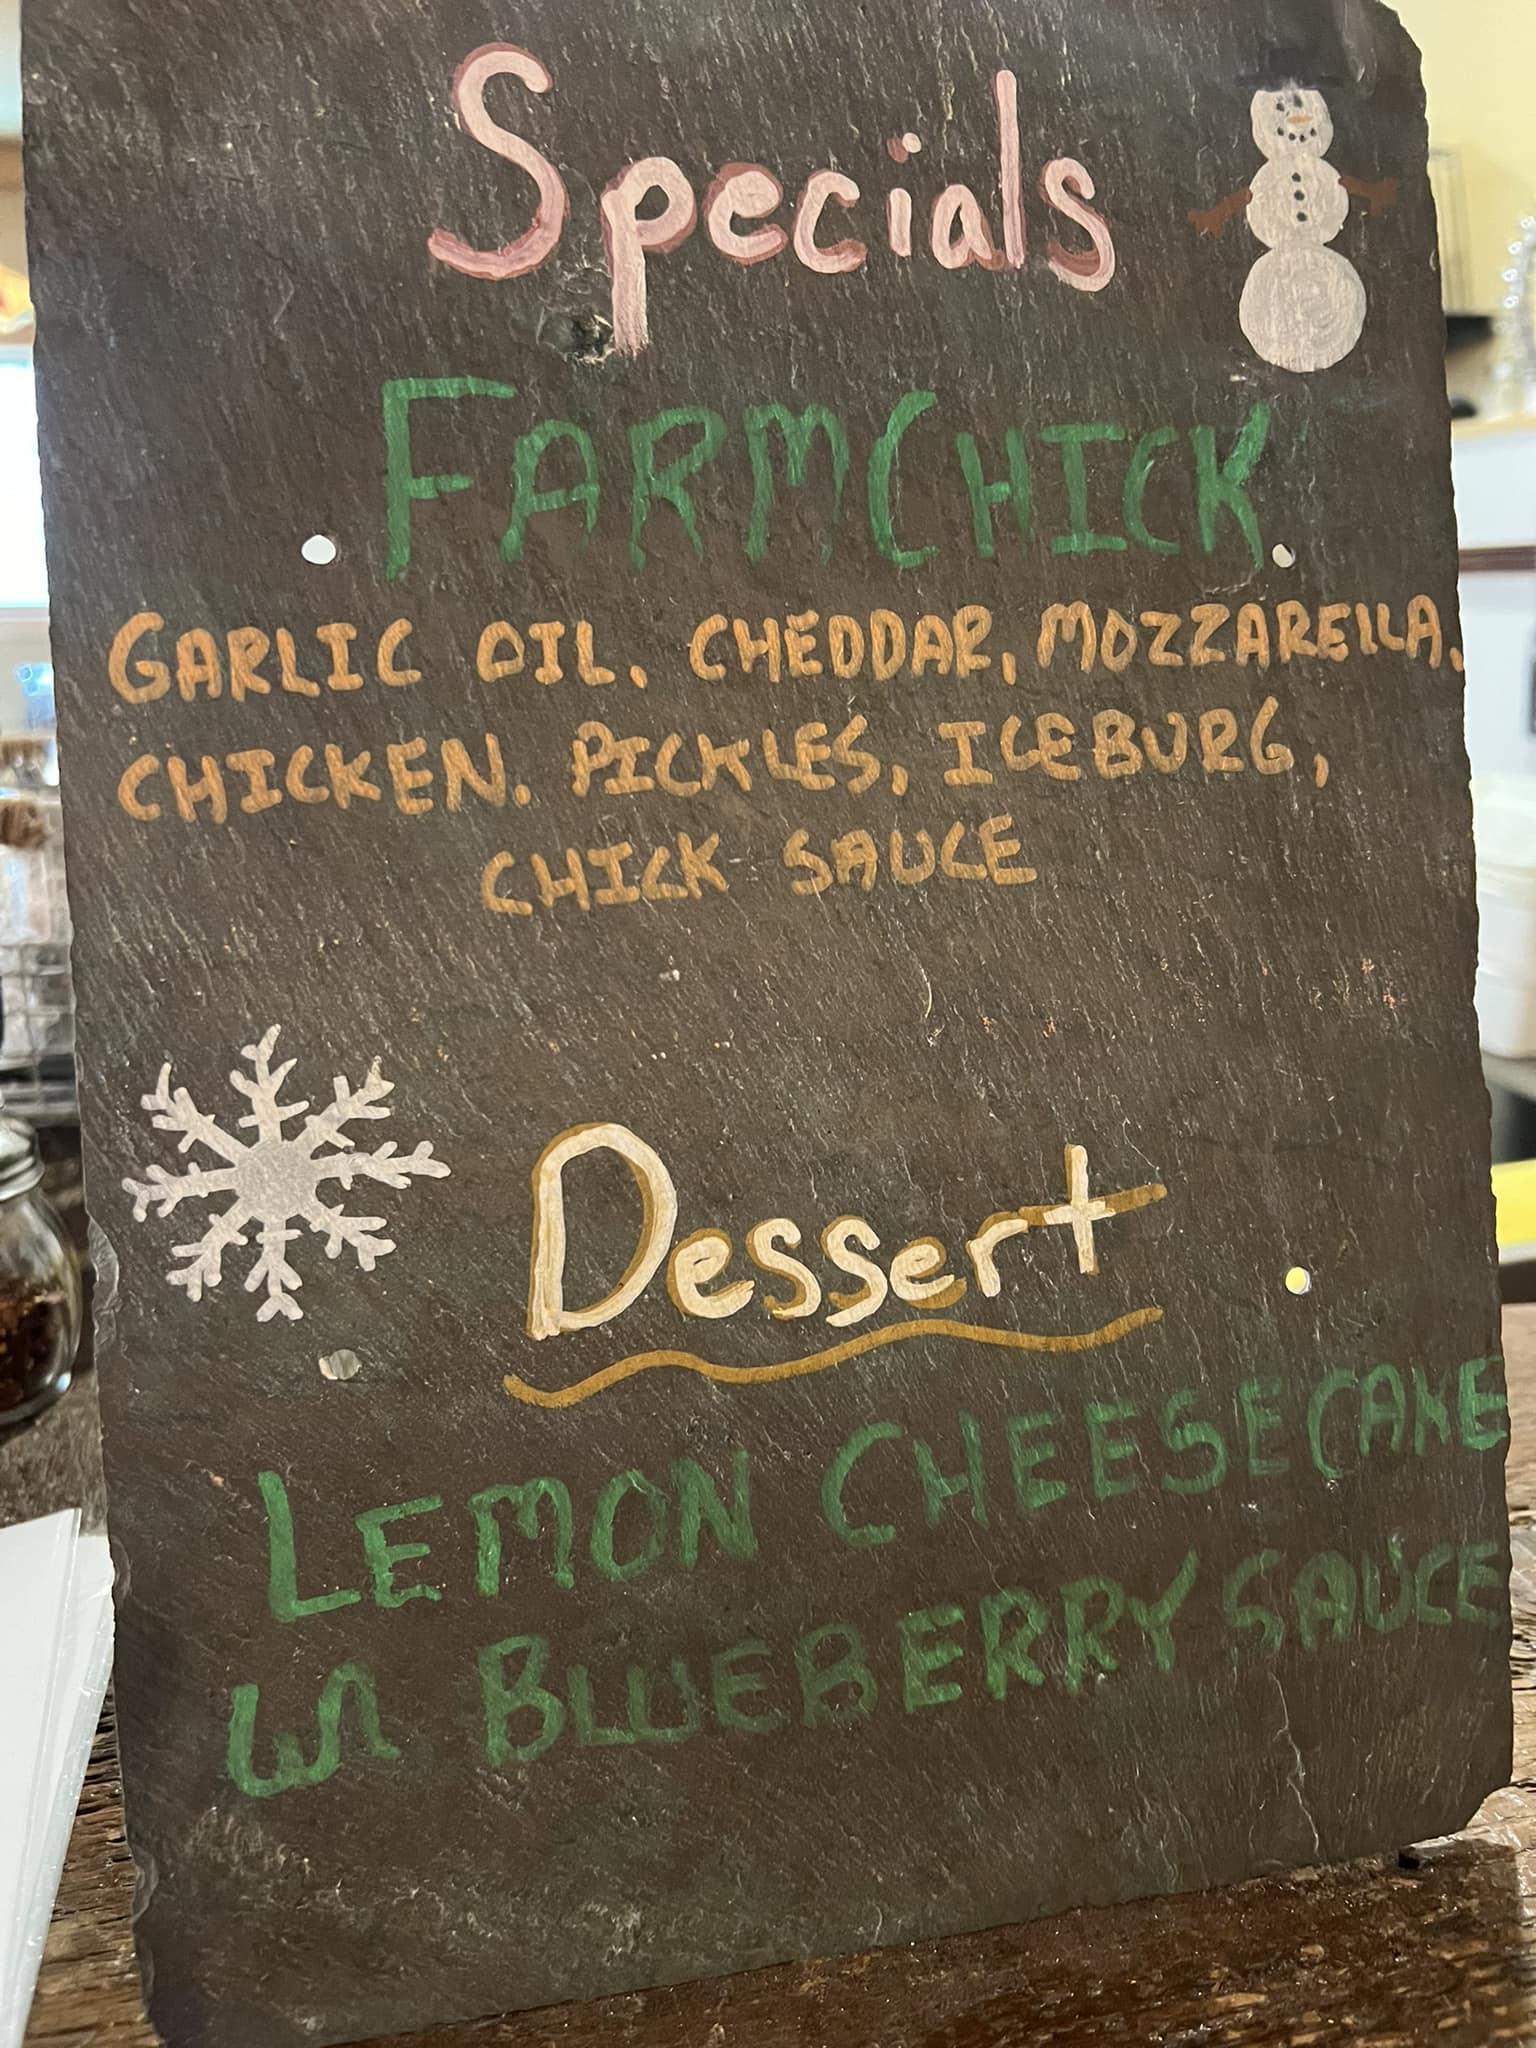 Specials
FARMCHICK
GARLIC OIL, CHEDDAR, MOZZARELLA,
CHICKEN, PICKLES, ICEBURG,
CHICK SAUCE
Dessert
LEMON CHEESECAKE
w/ BLUEBERRY SAUCE